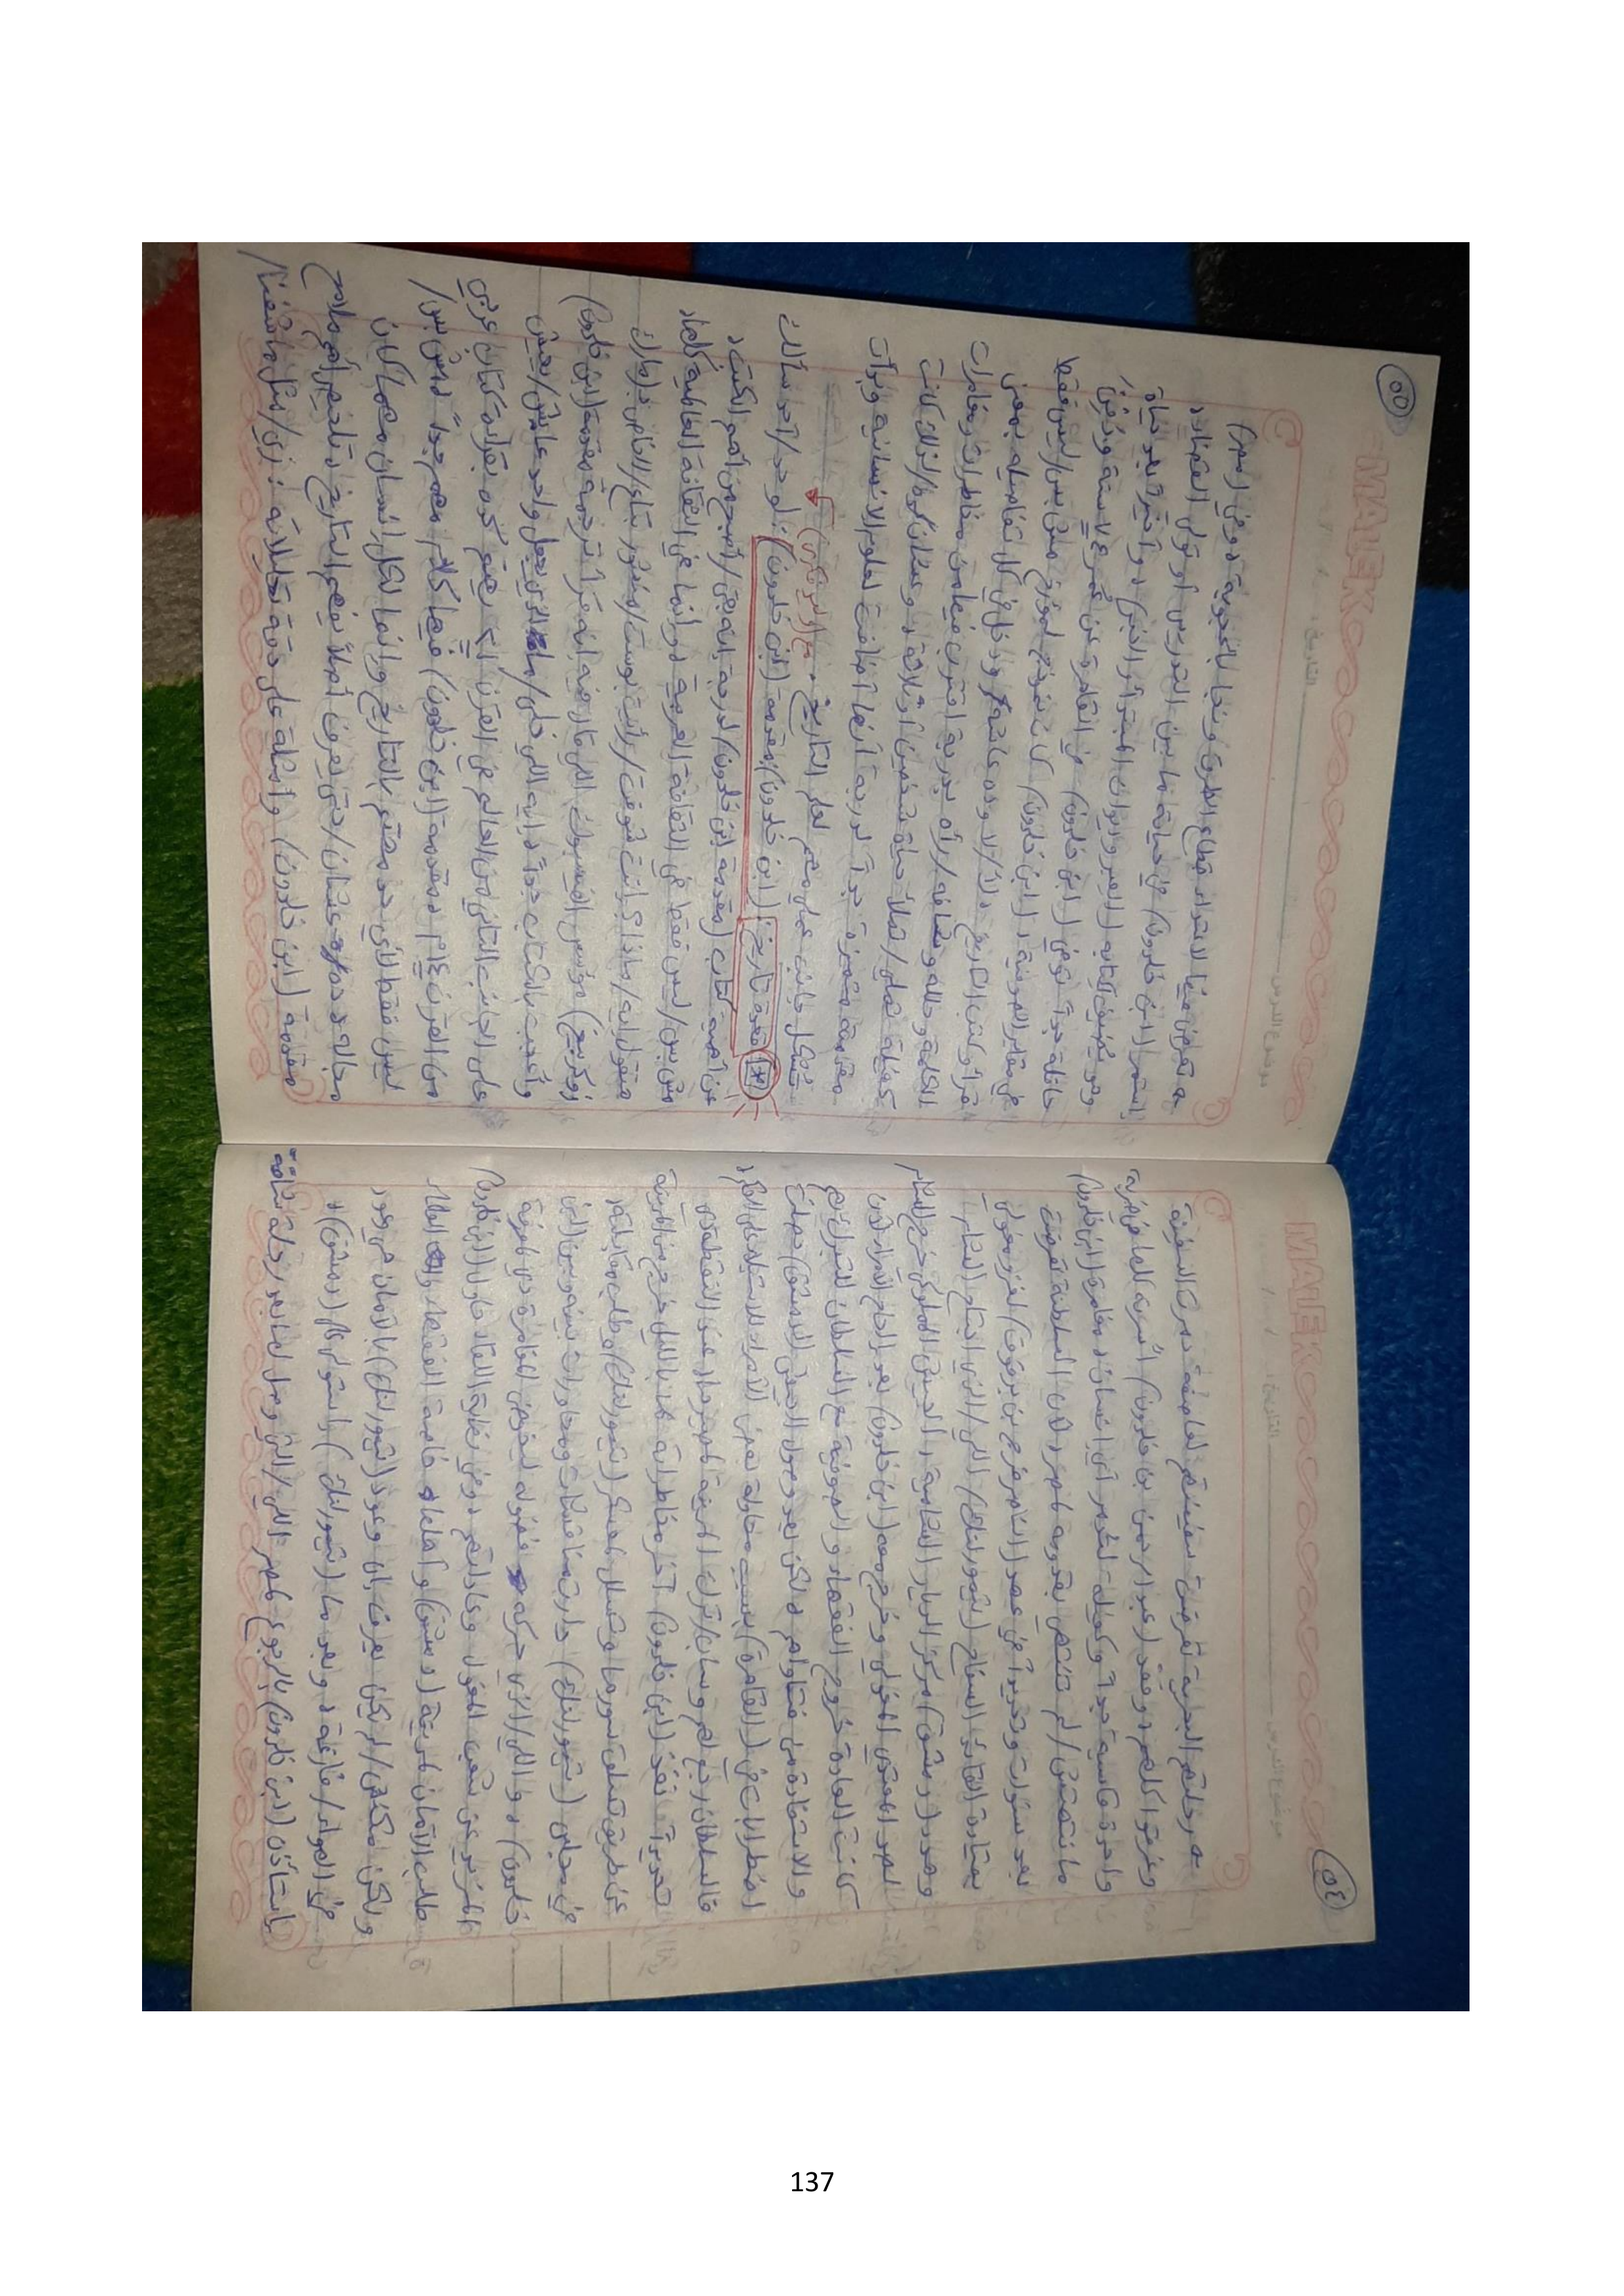 MALEK
موضوع الدرس
التاريخ :
٥٤
به رحلتهم البحرية تعرضت سفينتهم لعاصفة دمرت السفينة
وغرقوا كلهم، وفقد (عبد الرحمن بن خلدون) أسرته كلها في ضربة
واحدة قاسية جداً وكفيلة لتدمر أي إنسان، مغامرة (ابن خلدون)
ما انتهتش/لم تنتهي بقدومه لمصر، لأن السلطنة تعرضت
بعد سنوات وتحديداً في عهد (الناصر فرج بن برقوق) لغزو مغولي
بقيادة القائد السفاح (تيمورلنك)/اللي/الذي اجتاح الشام
وهدد (دمشق) مركز الديار الشامية، الجيش المملوكي خرج للشام
لصد المعتدي المغولي وخرج معه (ابن خلدون) بعد إلحاح الأمراء لأن
كانت العادة خروج الفقهاء و الصوفية مع السلطان للتبرك بهم
والاستفادة من فتاواهم، ولكن بعد وصول الجيش (لدمشق) حصلت
اضطرابات في (القاهرة) بسبب محاولة بعض الأمراء للاستيلاء على الحكم،
فالسلطان رجع لهم وساب/ترك المدينة لمصيرها، عند النقطة دي
تحديداً نفذ (ابن خلدون) آخر مخاطراته عندما بالليل خرج من المدينة
عن طريق تسلق سورها وتسلل لمعسكر (تيمورلنك) وطلب مقابلته،
في مجلس (تيمورلنك) دارت مناقشات ومحاورات بينه وبين (ابن
خلدون)، و اللي/الذي حركه فضوله ليخوض المغامرة دي لمعرفة
المزيد عن شعب المغول وعاداتهم، وفي نهاية اللقاء حاول (ابن خلدون)
طلب الأمان لمدينة (دمشق) وأهلها، خاصة الفقهاء والعلماء،
ولكن مكنش/لم يكن يعرف بأن وعود (تيمورلنك) بالأمان هي وعود
في الهواء/فارغة، وبعد ما (تيمورلنك) استولى على (دمشق)،
استأذن (ابن خلدون) بالرجوع لمصر اللي/التي وصل لها بعد رحلة شاقة
MALEK
موضوع الدرس
التاريخ :
٥٥
به تعرض فيها لاعتداء قطاع الطرق ونجا بأعجوبة، وفي (مصر)
استمر (ابن خلدون) في حياته ما بين التدريس أو تولي القضاء،
وهو يضيف لكتابه (العبر وديوان المبتدأ و الخبر)، وأخيراً بعد حياة
حافلة جداً توفي (ابن خلدون) في القاهرة عن عُمر ٧٤ سنة ودُفن
في مقابر الصوفية، (ابن خلدون) كان نموذج لمؤرخ مش بس/ليس فقط
قرأ وكتب التاريخ، لأ/لا وده عاشه، ودخل في كل تفاصيله بمعنى
الكلمة وحلله وشافه/رآه بتجربة اقترب فيها من مخاطرات ومغامرات
كفيلة تملى/تملأ حياة شخصين أو ثلاثة، وعشان كده/لذلك كانت
مقدمته متميزة جداً لدرجة أنها أضافت لعلوم الإنسانية وبدأت
تشكل جانب علمي مهم لعلم التاريخ. مع (الوفيكي)
* مقدمة تاريخ: (ابن خلدون)/مقدمة (ابن خلدون): لو حد/أحد سألك
عن أهمية كتاب (مقدمة ابن خلدون) لدرجة إنه بقى/أصبح من أهم الكتب،
مش بس/ليس فقط في الثقافة العربية، وإنما في الثقافة العالمية كلها،
هتقول إيه/ماذا؟، إنت شوفت/رأيت بوست/منشور بتاع/الخاص بـ(مارك
زوكربيرج) مؤسس الفيسبوك اللي كاتب فيه إنه قرأ ترجمة (مقدمة ابن خلدون)
وأُعجب بالكتاب جداً، إيه اللي خلى/ما الذي يجعل واحد عايش/يعيش
على الجانب التاني من العالم في القرن ٢١ يهتم كده بقراءة كتاب عربي
من القرن ١٤م، (مقدمة ابن خلدون) فيها كلام مهم جداً ومش بس/
ليس فقط لأي حد مهتم بالتاريخ، وإنما لكل إنسان مهما كان
مجاله، عشان/حتى يعرف أصلاً يفهم التاريخ، تلخيص لأهم ملامح
مقدمة (ابن خلدون) وأمثلة على دقة تحليلاته: زي/مثل ما شفنا/
137